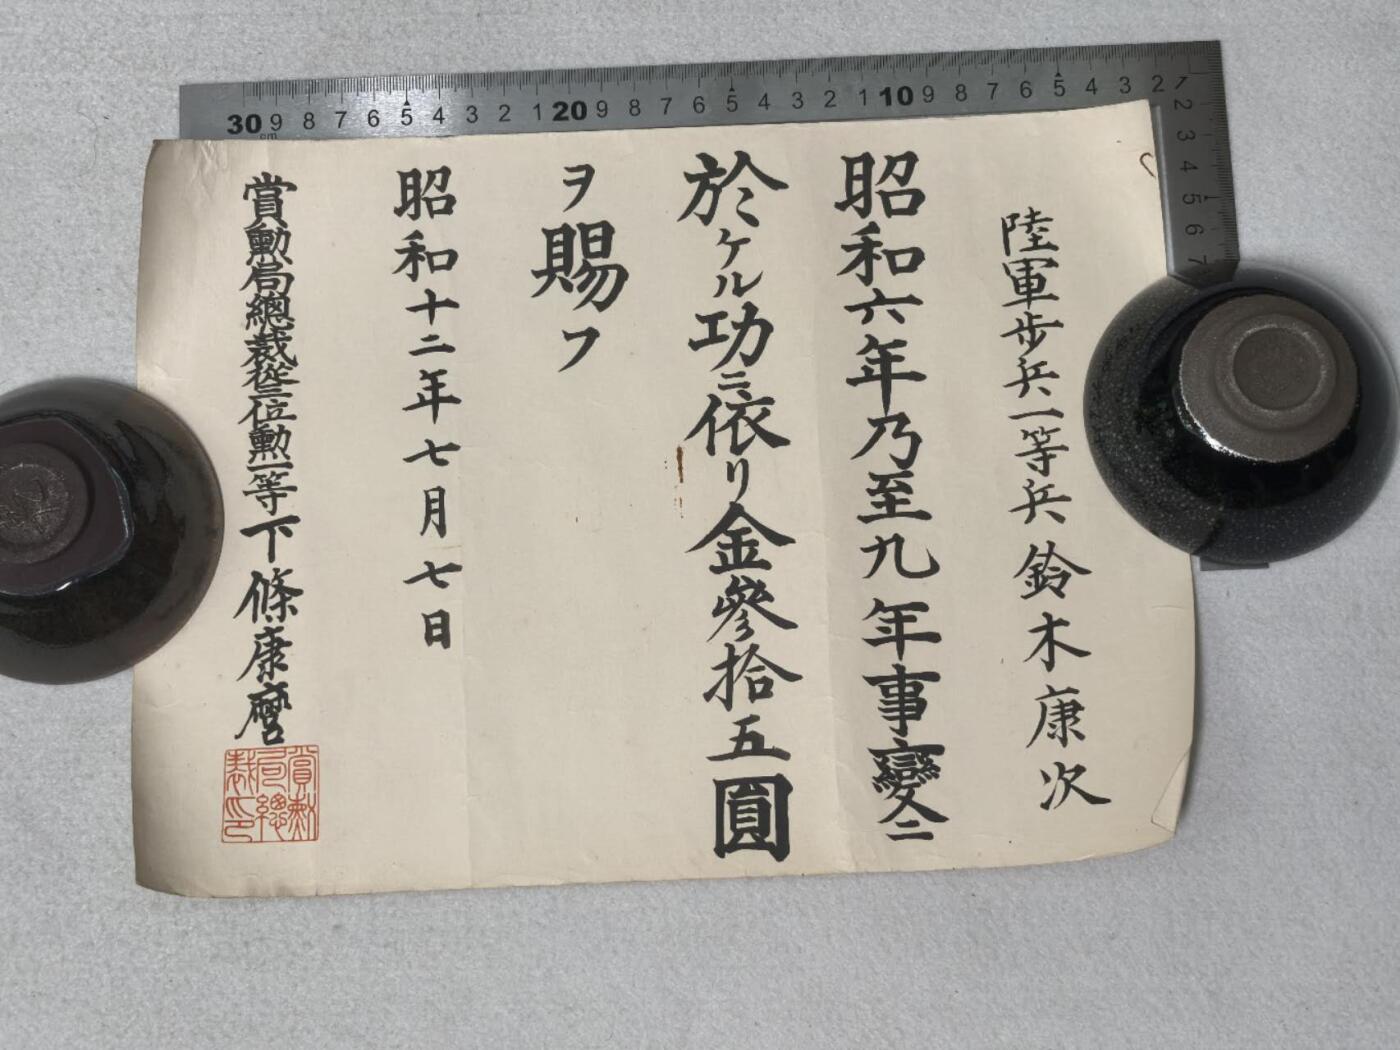 陸軍歩兵一等兵 鈴木康次
昭和六年乃至九年事變ニ
於ケル功ニ依リ金參拾五圓
ヲ賜フ
昭和十二年七月七日
賞勲局總裁從三位勲一等下條康麿
賞勲
局總
裁印
30 9 8 7 6 5 4 3 2 1 20 9 8 7 6 5 4 3 2 1 10 9 8 7 6 5 4 3 2 1
cm
2 3 4 5 6 7